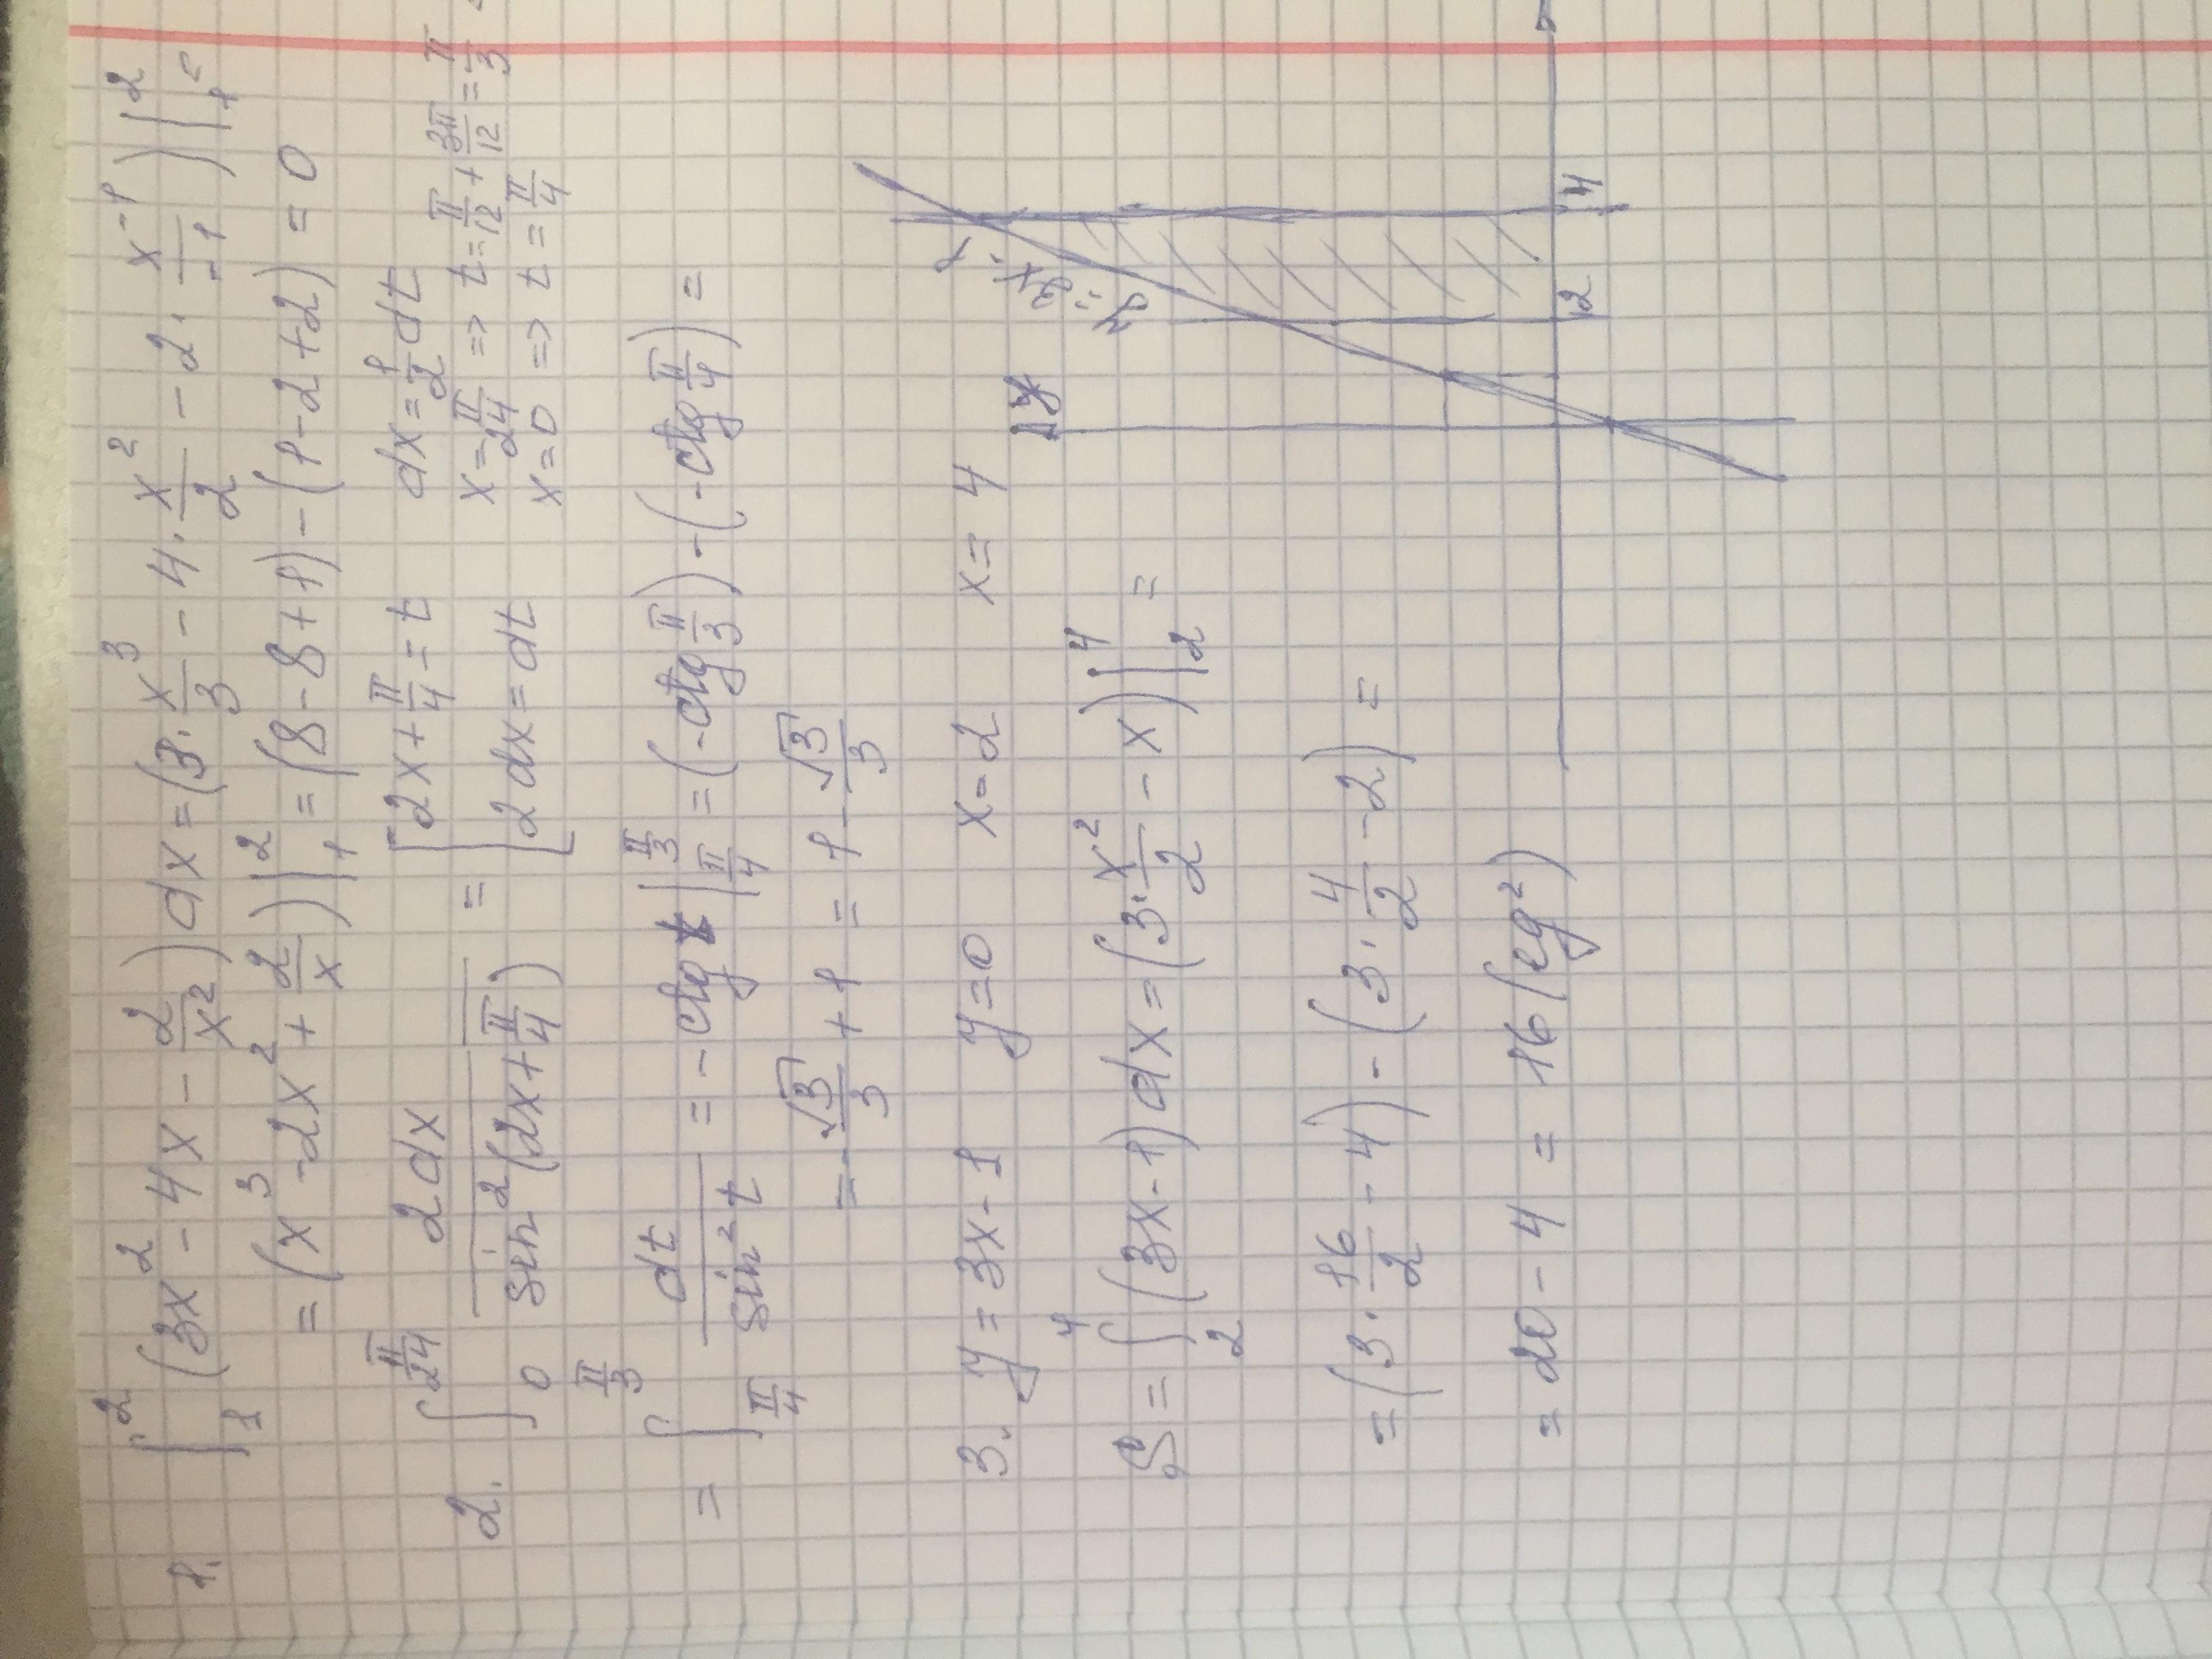 1. ∫₁² (3x² - 4x - 2/x²) dx = (3 · x³/3 - 4 · x²/2 - 2 · x⁻¹/-1) |₁² =
= (x³ - 2x² + 2/x) |₁² = (8 - 8 + 1) - (1 - 2 + 2) = 0
2. ∫₀^(π/24) 2dx / sin²(2x + π/4) = [2x + π/4 = t dx = 1/2 dt
2dx = dt x = π/24 => t = π/12 + 3π/12 = π/3
x = 0 => t = π/4
= ∫_(π/4)^(π/3) dt / sin² t = - ctg t |_(π/4)^(π/3) = (- ctg π/3) - (- ctg π/4) =
= - √3/3 + 1 = 1 - √3/3
3. y = 3x - 1 y = 0 x = 2 x = 4
S = ∫₂⁴ (3x - 1) dx = (3 · x²/2 - x) |₂⁴ =
= (3 · 16/2 - 4) - (3 · 4/2 - 2) =
= 20 - 4 = 16 (ед²)
y
y = 3x - 1
2 4